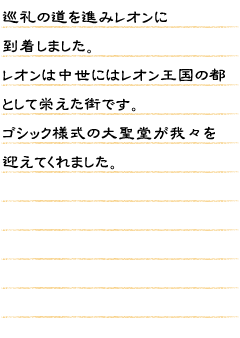 巡礼の道を進みレオンに
到着しました。
レオンは中世にはレオン王国の都
として栄えた街です。
ゴシック様式の大聖堂が我々を
迎えてくれました。